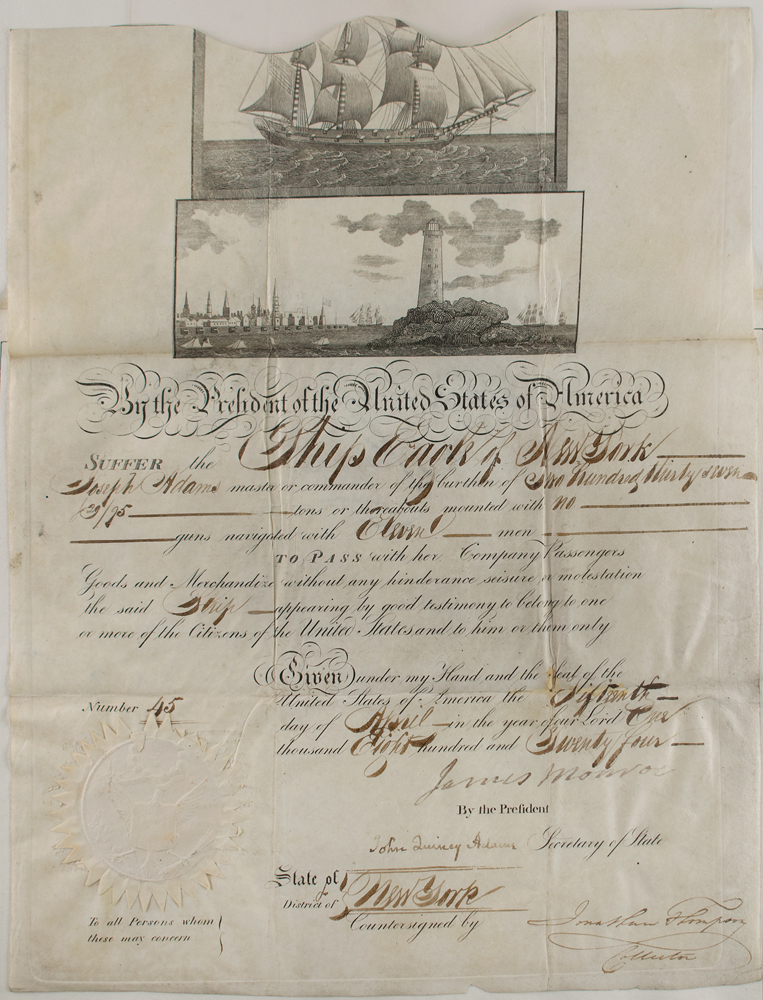 By the President of the United States of America
SUFFER the Ship of New York
Joseph Adams master or commander of the burthen of Two hundred thirty seven
/95 tons or thereabouts mounted with no
guns navigated with Eleven men
TO PASS with her Company Passengers
Goods and Merchandize without any hinderance seisure or molestation
the said Ship appearing by good testimony to belong to one
or more of the Citizens of the United States and to him or them only
Given under my Hand and the Seal of the
United States of America the Fifteenth
day of April in the year of our Lord One
thousand Eight hundred and Twenty four
Number 45
James Monroe
By the President
John Quincy Adams Secretary of State
State of } New York
District of
Countersigned by Jonathan Thompson
Collector
To all Persons whom
these may concern